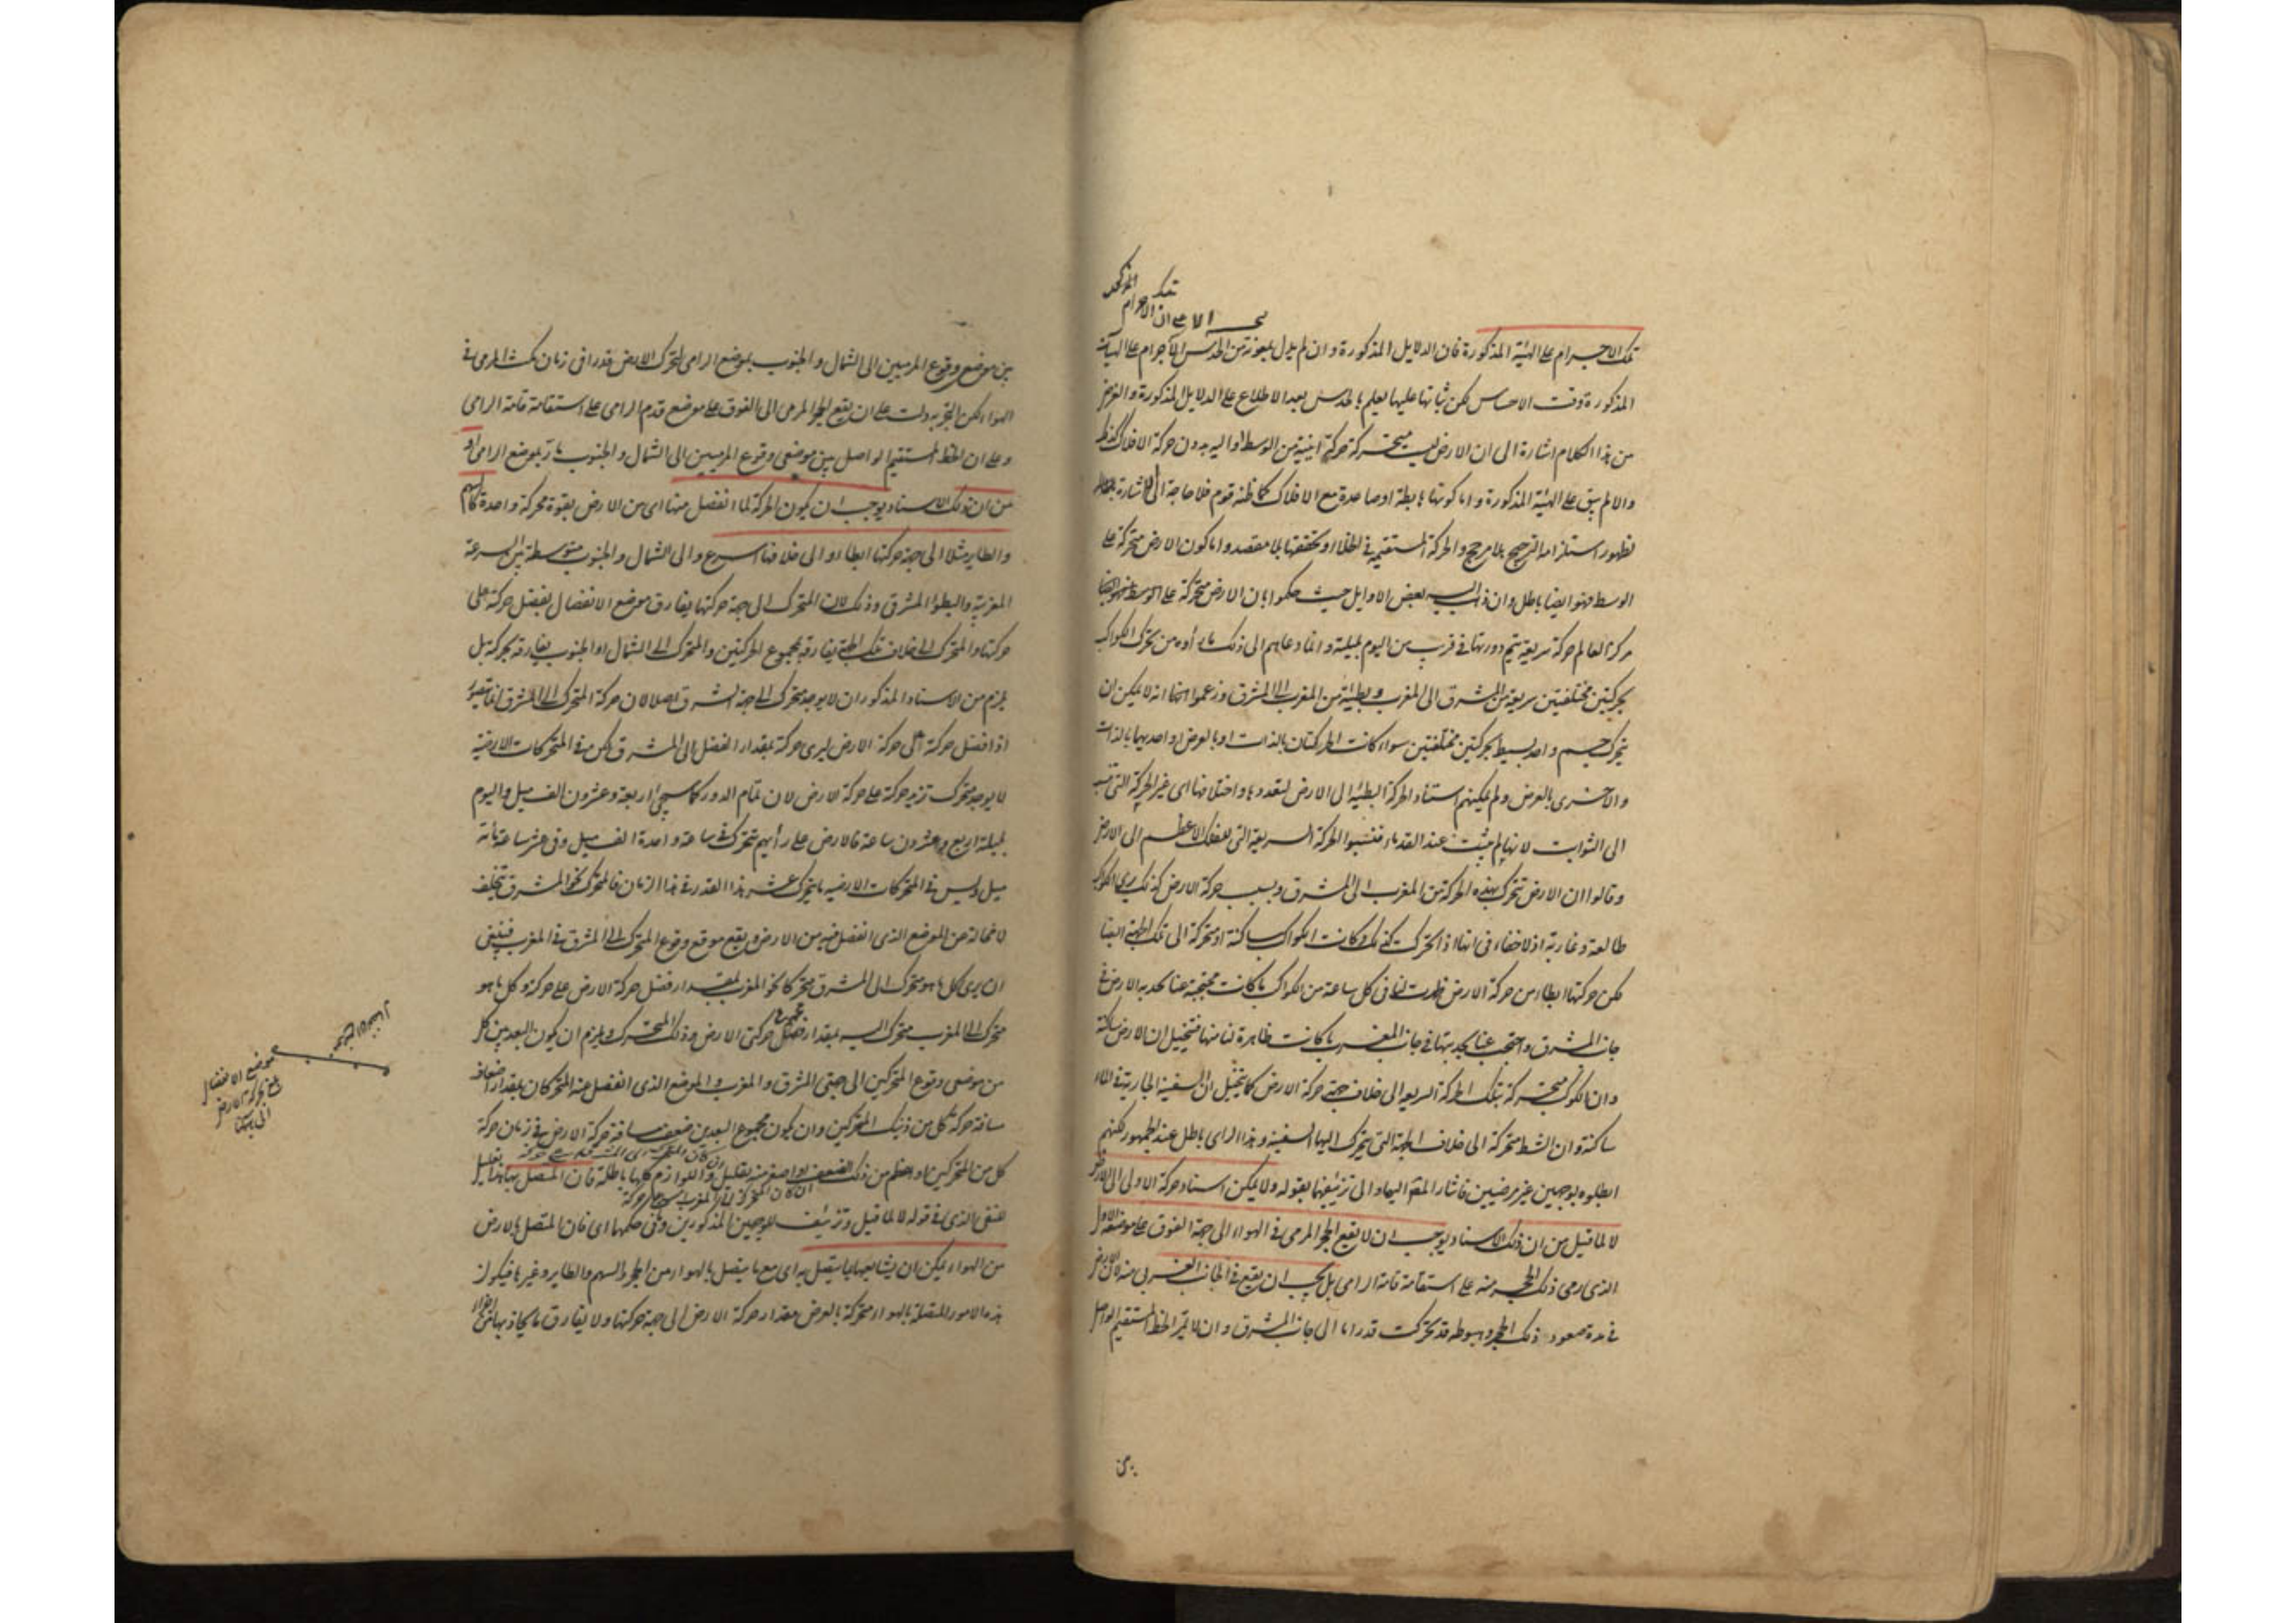 تلك الاجرام على الهيئة المذكورة فان الدلايل المذكورة وان لم يدل بمعونة من الحدس الاجرام على الهيآت
المذكورة وقت الاحساس لكن ثباتها عليها يعلم بالحدس بعد الاطلاع على الدلايل المذكورة والغرض
من هذا الكلام اشارة الى ان الارض ليست متحركة حركة اينية من الوسط او اليه بدون حركة الافلاك كذلك
والا لم يبق على الهيئة المذكورة واما كونها هابطة او صاعدة مع الافلاك كما ظنه قوم فلا حاجة الى الاشارة
لظهور استلزامه الترجيح بلا مرجح والحركة المستقيمة في الخلاء او تحققها بلا مقصد واما كون الارض متحركة على
الوسط فهو ايضا باطل وان ذهب اليه بعض الاوايل حيث حكموا بان الارض متحركة على الوسط
مركز العالم حركة سريعة يتم دورتها في قريب من اليوم بليلته وانما دعاهم الى ذلك ما رأوه من تحرك الكواكب
بحركتين مختلفتين سريعة من المشرق الى المغرب وبطيئة من المغرب الى المشرق وزعموا انه لا يمكن ان
يتحرك جسم واحد بسيط بحركتين مختلفتين سواء كانت الحركتان بالذات او بالعرض او احديهما بالذات
والاخرى بالعرض ولم يمكنهم اسناد الحركة البطيئة الى الارض لتعددها واختلافها اى غير الحركة التى تنسب
الى الثوابت لانها لم يثبت عند القدماء فنسبوا الحركة السريعة التى للفلك الاعظم الى الارض
وقالوا ان الارض تتحرك بهذه الحركة من المغرب الى المشرق وبسبب حركة الارض كذلك يرى الكواكب
طالعة وغاربة اذ لا خفاء فى انها اذا تحركت كذلك وكانت الكواكب ساكنة او متحركة الى تلك الجهة ايضا
لكن حركتها ابطاء من حركة الارض ظهرت لنا فى كل ساعة من الكواكب ما كانت محتجبة عنا بحدبة الارض فى
جانب المشرق واحتجب عنا بحدبتها فى جانب المغرب ما كانت ظاهرة لنا منها فيتخيل ان الارض ساكنة
وان الكواكب متحركة بتلك الحركة السريعة الى خلاف جهة حركة الارض كما يتخيل ان السفينة الجارية فى الماء
ساكنة وان الشط متحركة الى خلاف الجهة التى يتحرك اليها السفينة وهذا الراى باطل عند الجمهور لكنهم
ابطلوه بوجهين غير مرضيين فاشار المص اليهما والى تزييفهما بقوله ولا يمكن اسناد حركة الاولى الى الارض
لا لما قيل من ان ذلك الاسناد يوجب ان لا يقع الحجر المرمى فى الهواء الى جهة الفوق على موضعه الاول
الذى رمى ذلك الحجر منه على استقامة قامة الرامى بل يجب ان يقع فى الجانب الغربى منه لان الارض
فى مدة صعود ذلك الحجر وهبوطه قد تحركت قدراما الى جانب المشرق وان لا يمر الخط المستقيم الواصل
بين
بين موضع وقوع المرميين الى الشمال والجنوب بموضع الرامى لتحرك الارض قدرا فى زمان مكث المرمى فى
الهواء لكن التجربة دلت على ان يقع الحجر المرمى الى الفوق على موضع قدم الرامى على استقامة قامة الرامى
وعلى ان الخط المستقيم الواصل بين موضعى وقوع المرميين الى الشمال والجنوب مارّ بموضع الرامى او
من ان ذلك الاسناد يوجب ان يكون الحركة لما انفصل منها اى من الارض بقوة محركة واحدة كالسهم
والطاير مثلا الى جهة حركتها ابطاء والى خلافها اسرع والى الشمال والجنوب متوسطة بين السرعة
المغربية والبطؤ المشرقى وذلك لان المتحرك الى جهة حركتها يفارق موضع الانفصال بفضل حركته على
حركتها والمتحرك الى خلاف تلك الجهة يفارقه بمجموع الحركتين والمتحرك الى الشمال او الجنوب يفارقه بحركته بل
يلزم من الاسناد المذكور ان لا يوجد متحرك الى جهة المشرق اصلا لان حركة المتحرك الى المشرق انما تتصور
اذا فضل حركته على حركة الارض ليرى حركته بمقدار الفضل الى المشرق لكن فى المتحركات الارضية
لا يوجد متحرك تزيد حركته على حركة الارض لان تمام الدور كما سيجئ اربعة وعشرون الف ميل واليوم
بليلته اربع وعشرون ساعة فالارض على رأيهم تتحرك فى ساعة واحدة الف ميل وفى عشر ساعة مائة
ميل وليس فى المتحركات الارضية ما يتحرك عشر هذا القدر فى هذا الزمان فالمتحرك نحو المشرق يتخلف
لا محالة عن الموضع الذى انفصل فيه من الارض ويقع موقع وقوع المتحرك الى المشرق فى المغرب فينبغى
ان يرى كل ما هو متحرك الى المشرق متحركا نحو المغرب بمقدار فضل حركة الارض على حركته وكل ما هو
متحرك الى المغرب متحرك اليه بمقدار مجموع حركتى الارض وذلك المتحرك ويلزم ان يكون البعد بين كل
من موضعى وقوع المتحركين الى جهتى المشرق والمغرب والموضع الذى انفصل عنه المتحركان بمقدار اضعاف
مسافة حركة كل من ذينك المتحركين وان يكون مجموع البعدين ضعف مسافة حركة الارض فى زمان حركة
كل من المتحركين او اعظم من ذلك الضعف او اصغر منه بقليل واللوازم كلها باطلة فان المتصل بها تعليل
للنفى الذى فى قوله لا لما قيل وتزييف للوجهين المذكورين وفى حكمها اى فان المتصل بالارض
من الهواء يمكن ان يشايعها بما يتصل به اى مع ما يتصل بالهواء من الحجر والسهم والطاير وغيرها فيكون
هذه الامور المتصلة بالهواء متحركة بالعرض مقدار حركة الارض الى جهة حركتها ولا يفارق ما يحاذيها من
موضع الانفصال